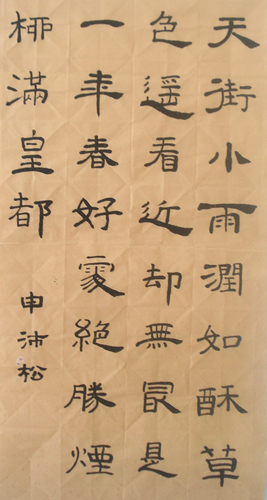 天街小雨潤如酥草
色遥看近却無最是
一年春好處絶勝煙
柳滿皇都
申沛松